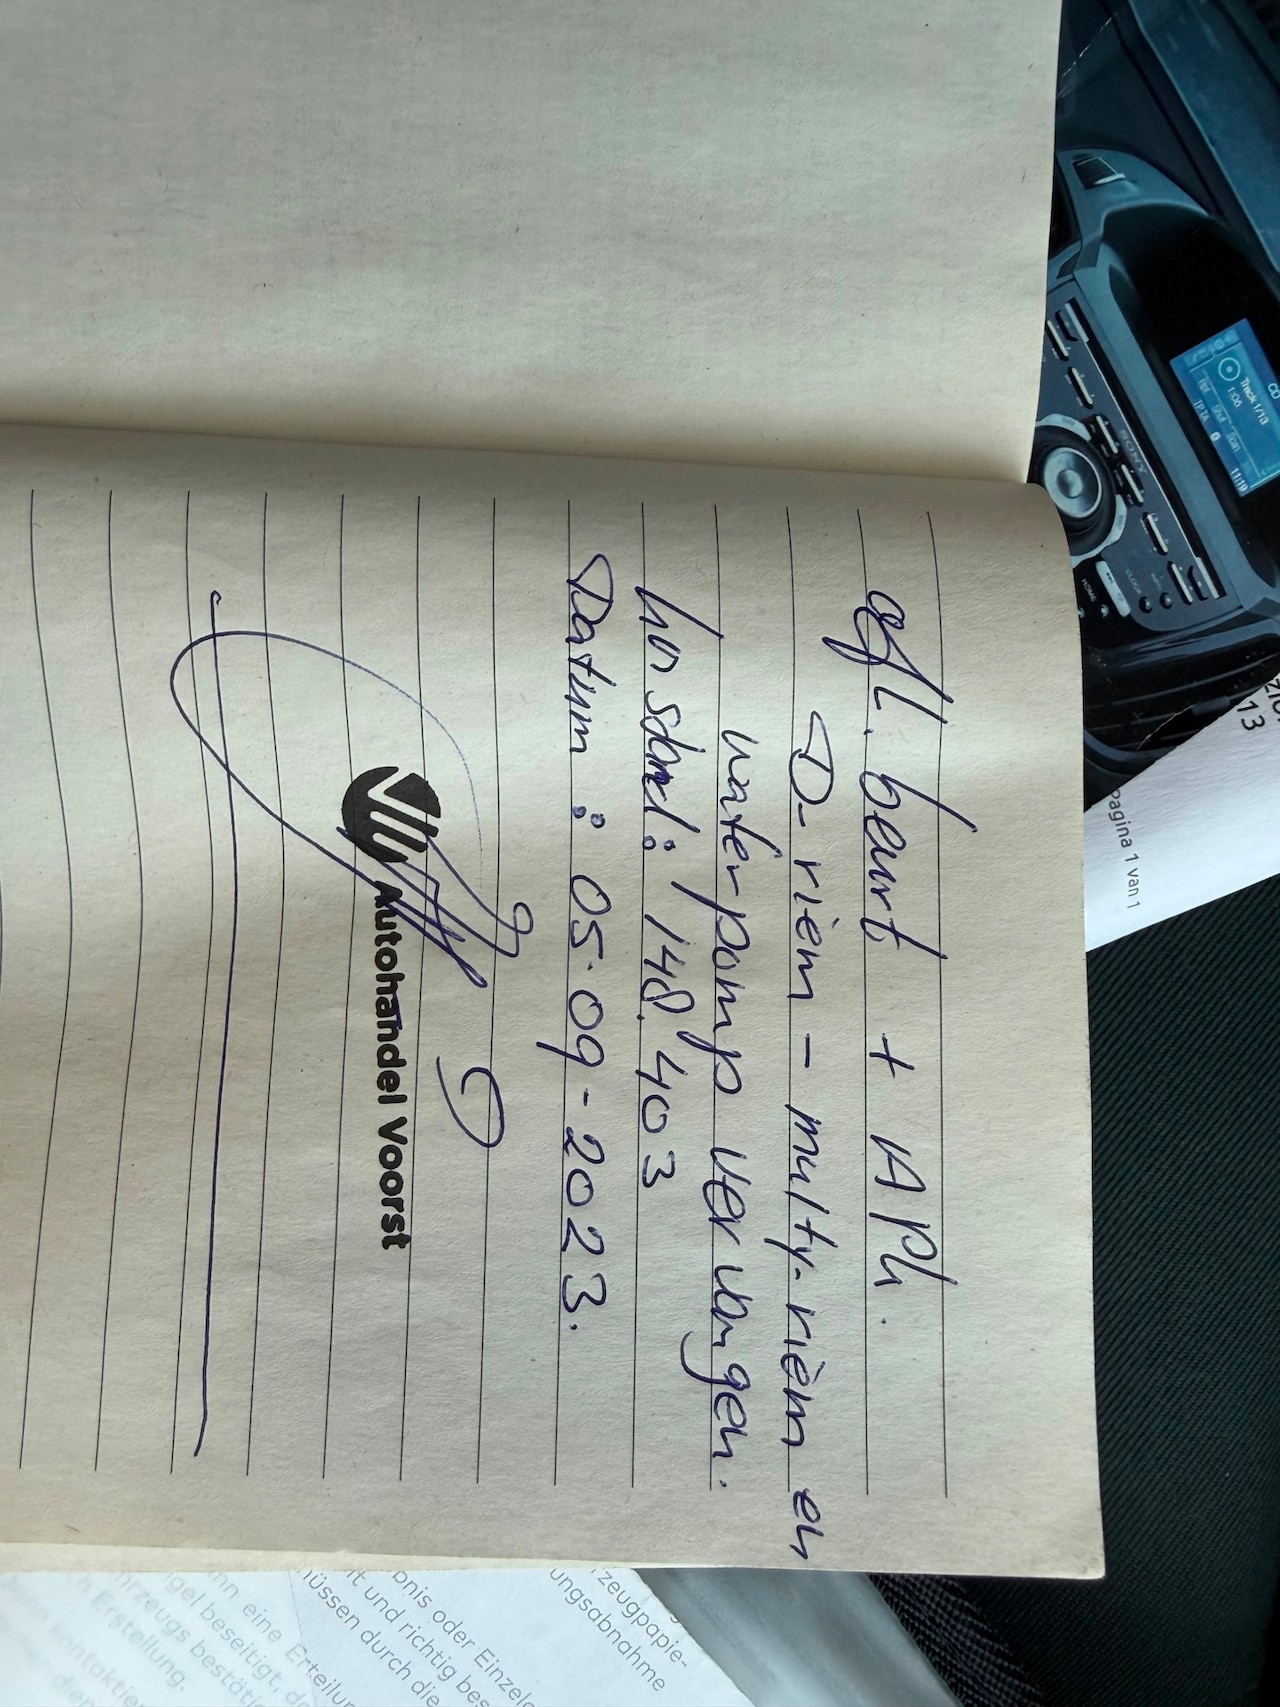 afl. beurt + APK.
D-riem - multy-riem en
waterpomp vervangen.
km stand: 148.403
Datum : 05-09-2023.
Autohandel Voorst
CD
Track 1/13
1:06
Rpt Shuf Scan
11:19
SONY
HOME
13
pagina 1 van 1
rzeugpapie-
ungsabnahme
bnis oder Einzel
it und richtig bes
müssen durch die
nn eine Erteilur
gel beseitigt, de
hrzeugs bestätig
h Erstellung.